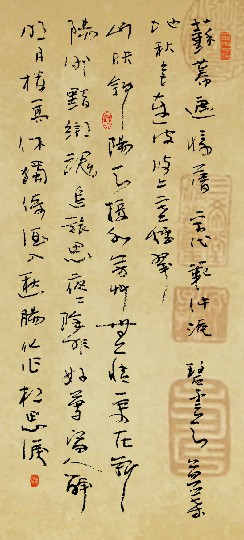 蘇幕遮懷舊 宋 范仲淹 碧雲天黃葉
地秋色連波波上寒煙翠
山映斜陽天接水芳草無情更在斜
陽外黯鄉魂追旅思夜夜除非好夢留人
明月樓高休獨倚酒入愁腸化作相思淚